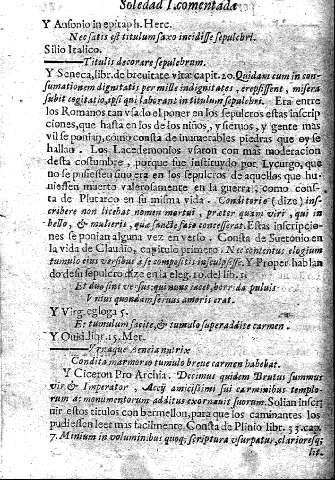 Soledad I. comentada
Y Ausonio in epitaph. Herc.
Nec satis est titulum saxo incidisse sepulcri.
Silio Italico.
Titulis decorare sepulcrum.
Y Seneca, libr. de breuitate vitæ capit. 20. Quidam cum in con-
sumationem dignitatis per mille indignitates, erepsissent, misera
subit cogitatio, ipsi qui laborant in titulum sepulcri. Era entre
los Romanos tan vsado el poner en los sepulcros estas inscrip
ciones, que hasta en los de los niños, y sieruos, y gente mas
vil se ponian, como consta de inumerables piedras que oy se
hallan. Los Lacedemonios vsaron con mas moderacion
desta costumbre, porque fue instituydo por Lycurgo, que
no se pusiessen sino era en los sepulcros de aquellos que hu-
uiessen muerto valerosamente en la guerra, como cons-
ta de Plutarco en su misma vida. Conditorio (dize) ins-
cribere non licebat nomen mortui, præter quam viri, qui in
bello, & mulieris, quæ sancte fato concesserat. Estas inscripcio-
nes se ponian alguna vez en verso. Consta de Suetonio en
la vida de Claudio, capitulo primero: Nec contentus elogium
tumulo eius versibus à se compositis insculpsisse. Y Proper hablan
do de su sepulcro dize en la eleg. 10. del lib. 2.
Et duo sint versus: qui nunc iacet, horrida puluis
Vnius quondam seruus amoris erat.
Y Virg. egloga 5.
Et tumulum facite, & tumulo superaddite carmen.
Y Ouid. libr. 15. Met.
Vrnaque Aeneia nutrix
Condita marmoreo tumulo breue carmen habebat.
Y Ciceron Pro Archia. Decimus quidem Brutus summus
vir & Imperator, Accij amicissimi sui carminibus templo-
rum ac monumentorum additus exornauit suorum. Solian inscri
uir estos titulos con bermellon, para que los caminantes los
pudiessen leer mas facilmente. Consta de Plinio libr. 33. cap.
7. Minium in voluminibus quoq; scriptura vsurpatur, clarioresq;
lit.